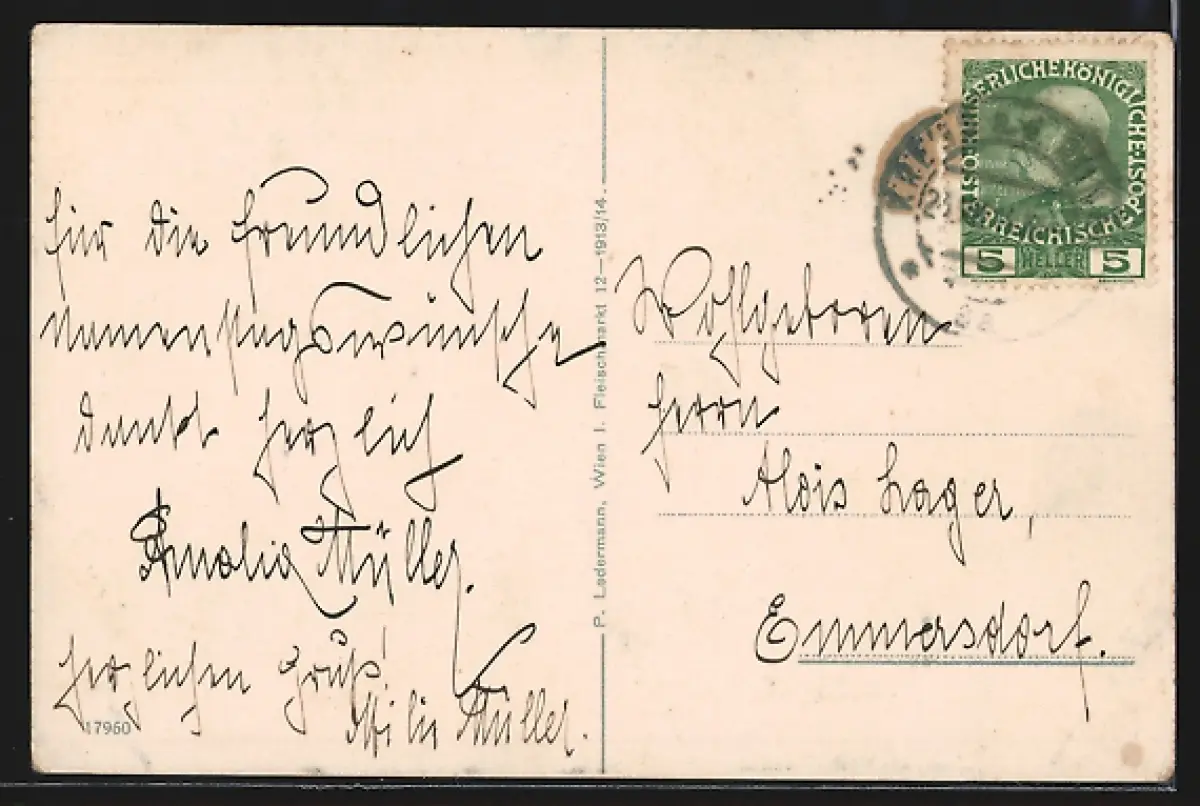 Für die freundlichen
Namenstagswünsche
dankt herzlich
Amalia Müller.
Herzlichen Gruß!
Müller.
17960
P. Ledermann, Wien I. Fleischmarkt 12—1913/14.
KAISERLICHEKÖNIGLICHE
ÖSTERREICHISCHE
POST
5 HELLER 5
Wohlgeboren
Herrn
Alois Lager,
Emmersdorf.